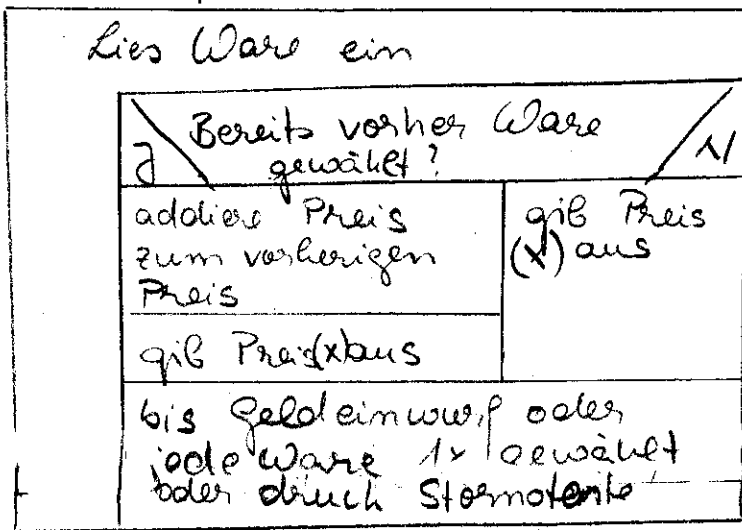 Lies Ware ein
Bereits vorher Ware
gewählt?
J
N
addiere Preis
zum vorherigen
Preis
gib Preis(x)aus
gib Preis
(x) aus
bis Geldeinwurf oder
jede Ware 1x gewählt
oder druck Stornotaste